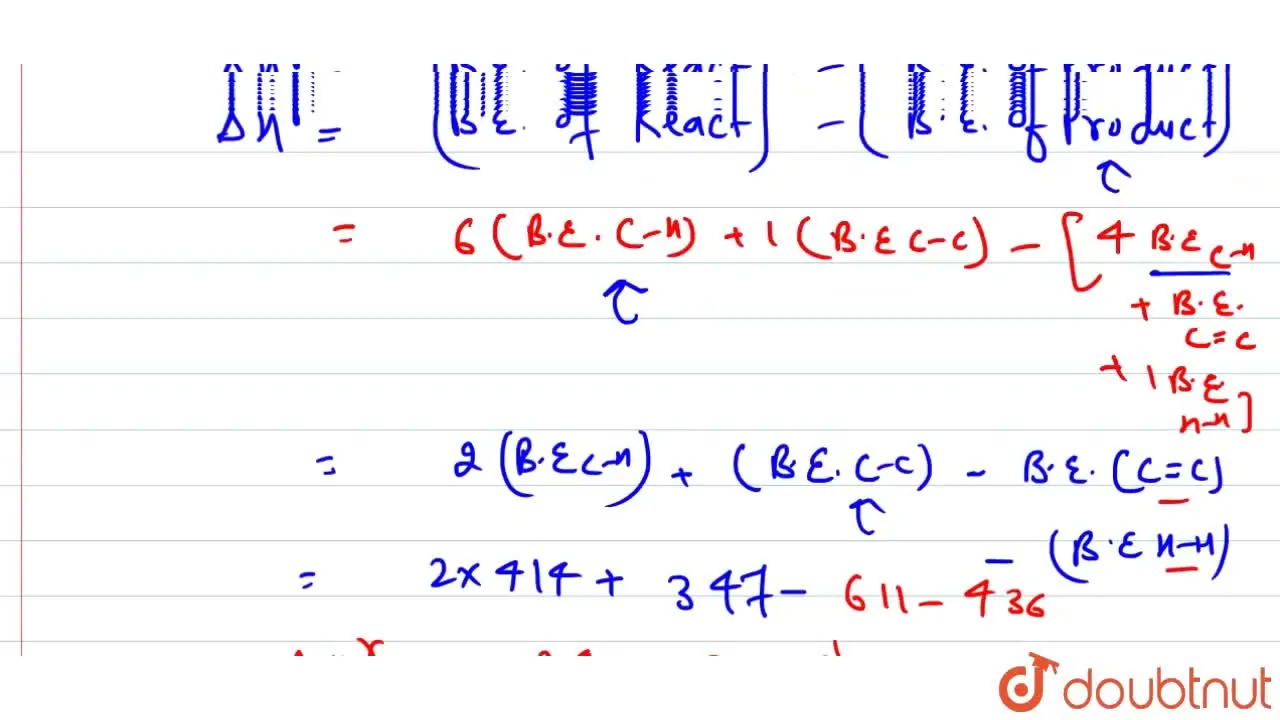 ΔH = (B.E. of React) - (B.E. of Product)
= 6 (B.E. C-H) + 1 (B.E C-C) - [4 B.E C-H
+ B.E. C=C
+ 1 B.E H-H]
= 2 (B.E C-H) + (B.E. C-C) - B.E. (C=C)
- (B.E H-H)
= 2x 414 + 347 - 611 - 436
doubtnut